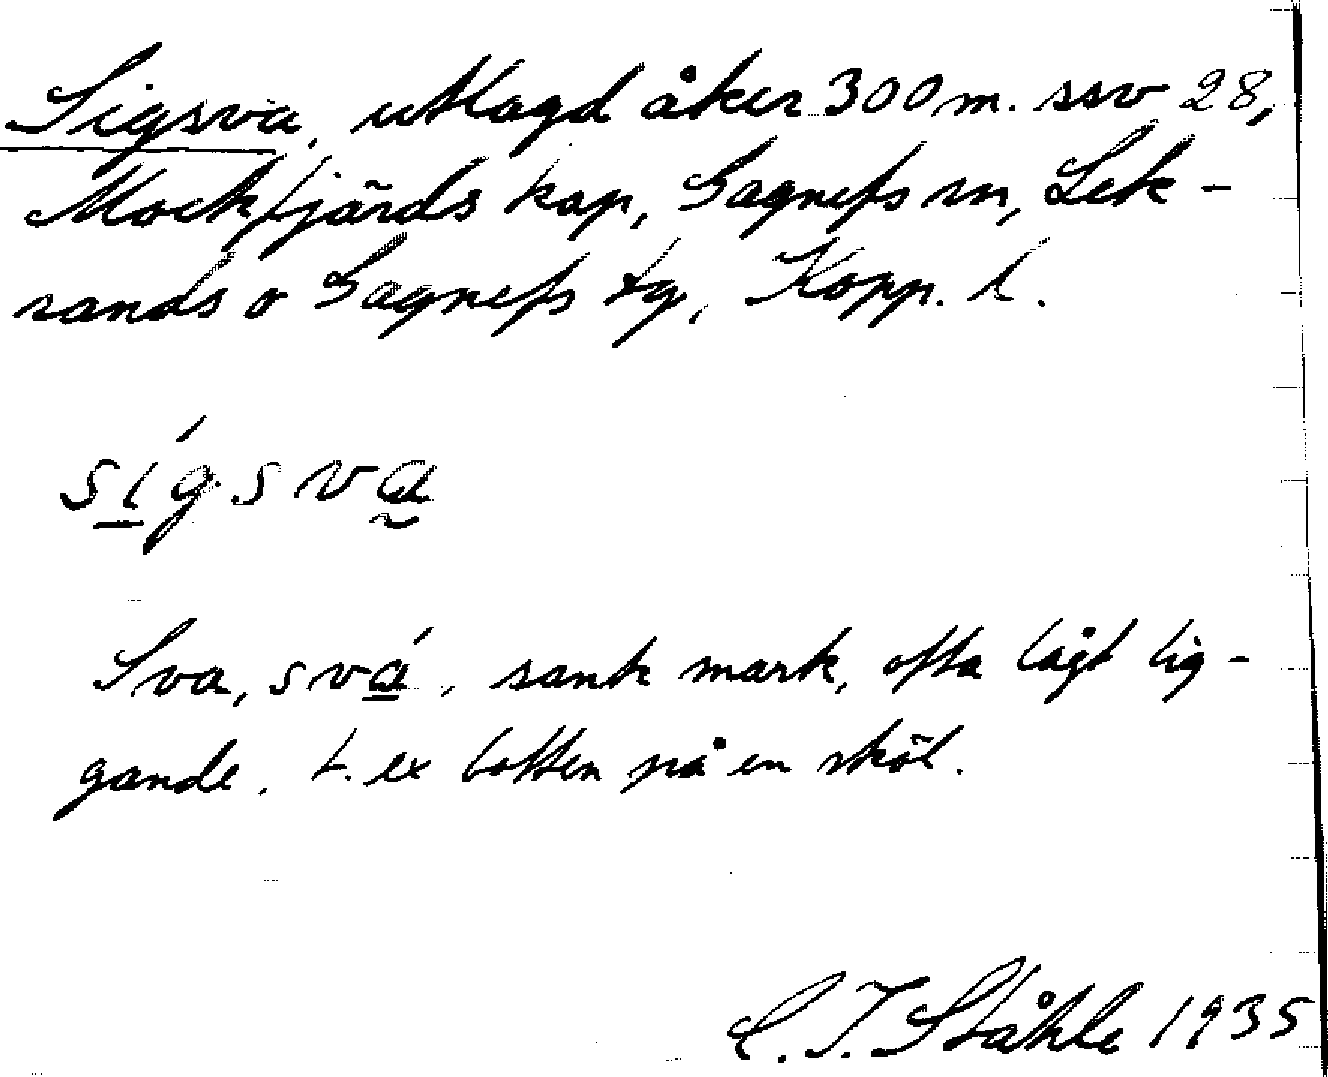 Sigsva, utlagd åker 300 m. ssv 28,
Mockfjärds kap, Gagnefs sn, Lek-
sands o Gagnefs tg, Kopp. l.
sígsva
Sva, svá, sank mark, ofta lågt lig-
gande. t. ex botten på en sköl.
C. I. Ståhle 1935